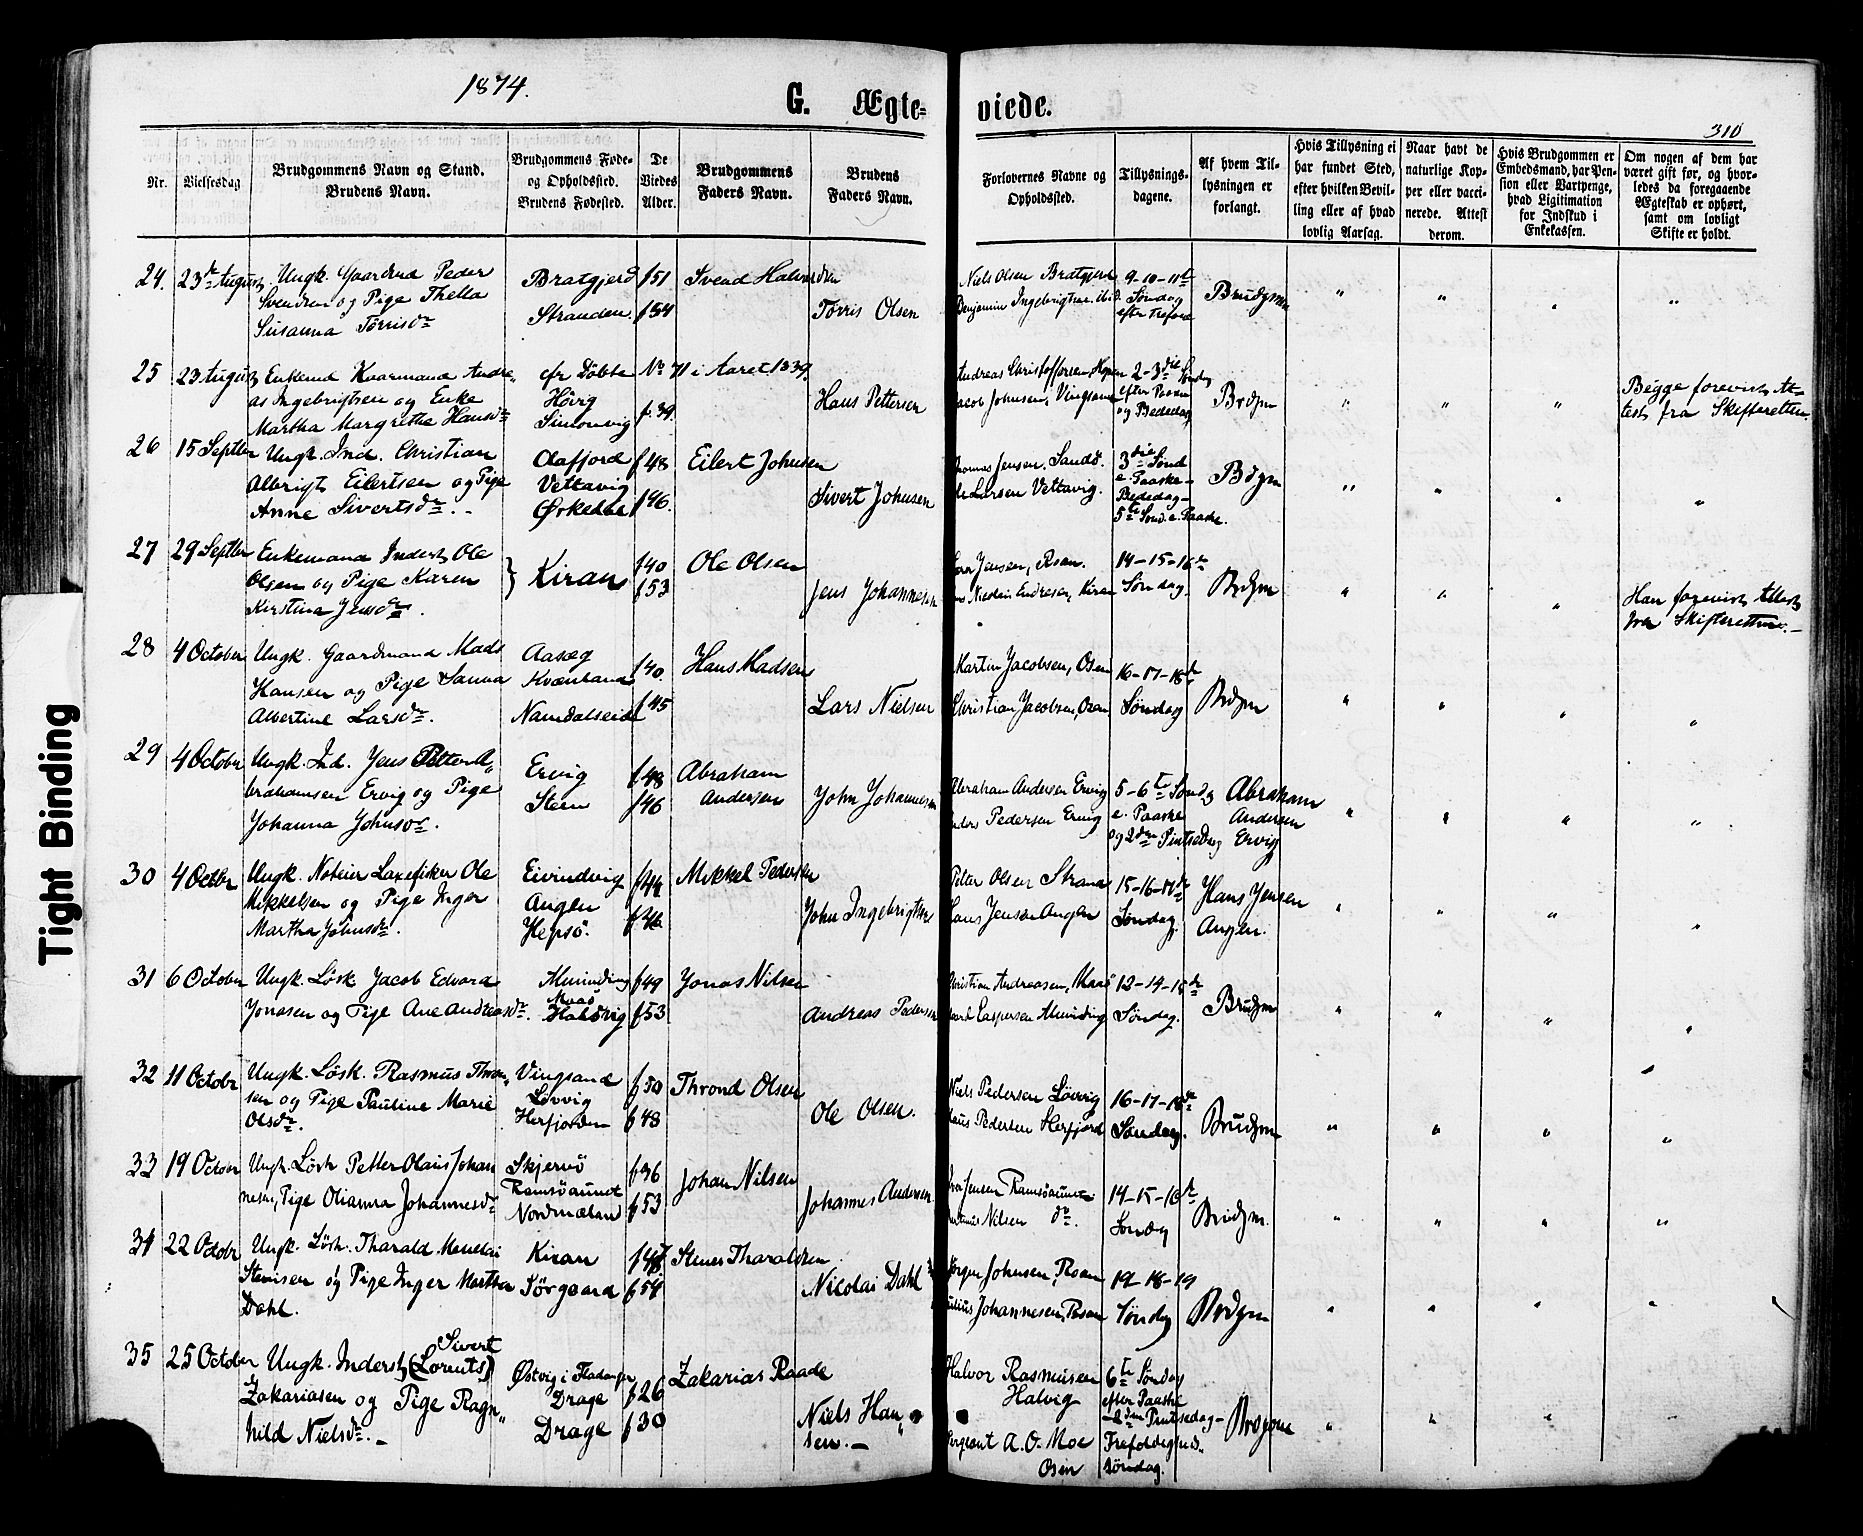 1874.
G. Ægte-
viede.
310
Nr.
Vielsesdag
Brudgommens Navn og Stand.
Brudens Navn.
Brudgommens Føde-
og Opholdssted.
Brudens Fødested.
De
Viedes
Alder.
Brudgommens
Faders Navn.
Brudens
Faders Navn.
Forlovernes Navne og
Opholdssted.
Tillysnings-
dagene.
Af hvem Til-
lysningen er
forlangt.
Hvis Tillysning ei
har fundet Sted,
efter hvilken Bevil-
ling eller af hvad
lovlig Aarsag.
Naar havt de
naturlige Kop-
per eller vacci-
nerede. Attest
derom.
Hvis Brudgommen er
Embedsmand, har Pen-
sion eller Vartpenge,
hvad Legitimation
for Indskud i
Enkekassen.
Om nogen af dem har
været gift før, og hvor-
ledes da foregaaende
Ægteskab er ophørt,
samt om lovligt
Skifte er holdt.
24. 23de August Ungk. Gaardbrd Peder Bratgjerd f 51 Svend Halvorsen
Svendsen og Pige Thella
Susanna Törrisdr Stranden f 54 Törris Olsen
Niels Olsen Bratgjerd 9-10-11te
Benjamin Ingebrigtsen ibid. Søndag Brudgmn
efter Trefold
25 23 August Enkemd Kaarmand Andre„ cfr Döbte No 71 i Aaret 1839.
as Ingebrigtsen og Enke Hövig Hans Pettersen
Martha Margrethe Hansdr Simonvig f. 39.
Andreas Christoffersen 2-3die Sönd
Jacob Johnsen, Vingsand efter Paaske Brdgm
og Bededag
Begge forevist At-
test fra Skifteretten.
26 15 Septbr Ungk. Ind. Christian Olafjord f 48 Eilert Johnsen
Albrigt Eilertsen og Pige Vettavig
Anne Sivertsdr. Ørkedal f 46. Sivert Johnsen
Thomas Jensen, Sandv. 3die Sönd
Larsen Vettavig. e. Paaske- Bdgm
Bededag-
5te Sönd. e. Paaske.
27 29 Septbr Enkemand Inderst Ole f 40 Ole Olsen
Olsen og Pige Karen } Kiran f 53
Kirstina Jensdr. Jens Johannesen
Jensen, Osen. 14-15-16de
Endresen, Kiran Söndag. Brdgm
Han forevist Attest
fra Skifteretten.-
28 4 October Ungk. Gaardmand Mads Aasæg f 40. Hans Madsen
Hansen og Pige Sanna Kvænland
Albertine Larsdr. Namdalseid f 45 Lars Nielsen
Martin Jacobsen, Osen 16-17-18de
Christian Jacobsen, Osen Söndag Brdgm
29 4 October Ungk. Ind. Jens Petter A„ Ervig f 48 Abraham
brahamsen Ervig og Pige Andersen
Johanna Johnsdr. Steen f 46 John Johannesen
Abraham Andersen Ervig 5-6te Sönd Abraham
Anders Pedersen Ervig e. Paaske Andersen
og 2den Pintsedag Ervig
30 4 Octbr Ungk. Noteier Laxefisker Ole Eivindvig f 44 Mikkel Pedersen
Mikkelsen og Pige Inger Angen
Martha Johnsdr. Hepsö. f 46 John Ingebrigtsen
Petter Olsen Strand 15-16-17de Hans Jensen
Hans Jensen Angen Söndag. Angen.
31 6 October Ungk. Lösk. Jacob Edvard Alminding f 49 Jonas Nilsen
Jonasen og Pige Ane Andreasdr. Halsvig f 53 Andreas Pedersen
Christian Andreasen, 12-14-15de
Caspersen Alminding Söndag. Brudgm
32 11 Octobr Ungk. Lösk. Rasmus Thron„ Vingsand f 50 Thrond Olsen
sen og Pige Pauline Marie Lövvig
Olsdr. Herfjorden f 48 Ole Olsen.
Niels Pedersen Lövvig 16-17-18de
Claus Pedersen Herfjord Söndag. Brudgm
33 19 Octobr Ungk. Lösk Petter Olaus Johan Skjervö f 46 Johan Nilsen
nesen, Pige Olianna Johannesdr Ramsöaunet
Nordmæland f 53 Johannes Andersen
Jensen Ramsöaunet 14-15-16de
Nilsen do. Söndag Brudgm.
34 22 Octobr Ungk. Lösk. Tharald Kiran Stener Tharaldsen
Stenersen og Pige Inger Martha Sörgaard f 54 Nicolai Dahl
Dahl.
Jörgen Johnsen, Osen 17-18-19
Julius Johannesen, Osen Söndag Brdgm
35 25 October Ungk. Inderst Sivert (Lornts) Østvig i Fladanger Zakarias Raade
Zakariasen og Pige Ragn„ Drage f 26
hild Nielsdr.- Drage f 30 Niels Han„
sen.-
Halvor Rasmusen 6te Söndag
Halvig efter Paaske
-2den Pintsedag- Brdgom
Sergeant A. O. Moe Trefoldighed„
Osen Söndag.
Tight Binding